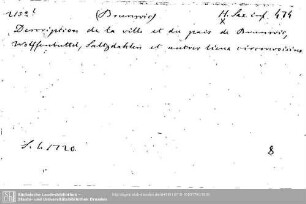 (Brunsvic) H. Sax inf. 474
Description de la ville et du pais de Brunsvic,
Wolffenbuttel, Saltzdahlen et autres lieux circonvoisins
S. l. 1720. 8
Sächsische Landesbibliothek -
Staats- und Universitätsbibliothek Dresden